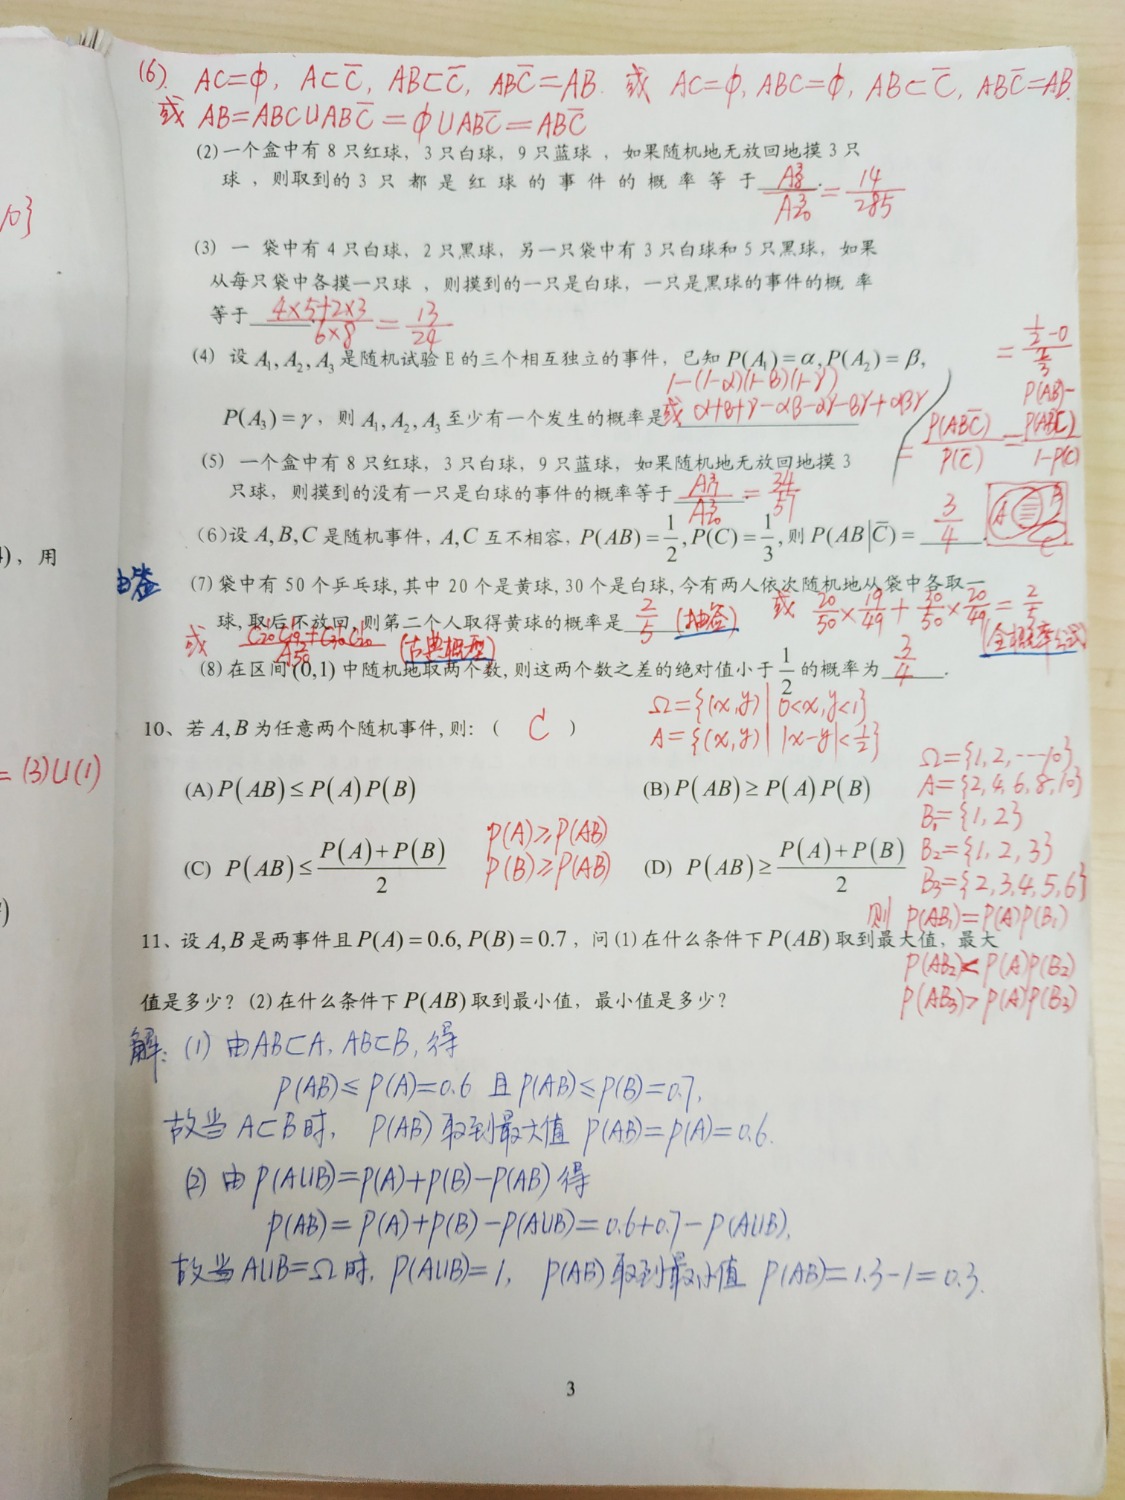 (6). AC=φ, A⊂C̅, AB⊂C̅, ABC̅=AB. 或 AC=φ, ABC=φ, AB⊂C̅, ABC̅=AB.
或 AB=ABC∪ABC̅=φ∪ABC̅=ABC̅
(2)一个盒中有8只红球，3只白球，9只蓝球，如果随机地无放回地摸3只
球，则取到的3只都是红球的事件的概率等于 A₈³/A₂₀³ = 14/285
10}
(3) 一 袋中有4只白球，2只黑球，另一只袋中有3只白球和5只黑球，如果
从每只袋中各摸一只球，则摸到的一只是白球，一只是黑球的事件的概 率
等于 (4×5+2×3)/(6×8) = 13/24
(4) 设A₁,A₂,A₃是随机试验E的三个相互独立的事件，已知P(A₁)=α,P(A₂)=β,
1-(1-α)(1-β)(1-γ)
P(A₃)=γ，则A₁,A₂,A₃至少有一个发生的概率是 或 α+β+γ-αβ-αγ-βγ+αβγ
(5) 一个盒中有8只红球，3只白球，9只蓝球，如果随机地无放回地摸3
只球，则摸到的没有一只是白球的事件的概率等于 A₁₇³/A₂₀³ = 34/57
(6)设A,B,C是随机事件，A,C互不相容，P(AB)=1/2,P(C)=1/3,则P(AB|C̅)= 3/4
= P(ABC̅)/P(C̅) = (P(AB)-P(ABC))/(1-P(C))
= (1/2-0)/(2/3)
A B
C
),用
抽签
(7)袋中有50个乒乓球,其中20个是黄球,30个是白球,今有两人依次随机地从袋中各取一
球,取后不放回,则第二个人取得黄球的概率是 2/5 (抽签) 或 20/50×19/49+30/50×20/49=2/5
(全概率公式)
或 (C₂₀¹C₁₉¹+C₃₀¹C₂₀¹)/A₅₀² (古典概型)
(8)在区间(0,1)中随机地取两个数,则这两个数之差的绝对值小于1/2的概率为 3/4.
Ω={(x,y)| 0<x,y<1}
A={(x,y)| |x-y|<1/2}
10、若A,B为任意两个随机事件,则:（ C ）
=(3)∪(1)
(A)P(AB)≤P(A)P(B) (B)P(AB)≥P(A)P(B)
(C) P(AB)≤(P(A)+P(B))/2 (D) P(AB)≥(P(A)+P(B))/2
P(A)≥P(AB)
P(B)≥P(AB)
Ω={1,2,…10}
A={2,4,6,8,10}
B₁={1,2}
B₂={1,2,3}
B₃={2,3,4,5,6}
则 P(AB₁)=P(A)P(B₁)
P(AB₂)<P(A)P(B₂)
P(AB₃)>P(A)P(B₃)
11、设A,B是两事件且P(A)=0.6,P(B)=0.7，问(1)在什么条件下P(AB)取到最大值，最大
值是多少? (2)在什么条件下P(AB)取到最小值，最小值是多少?
解: (1) 由AB⊂A, AB⊂B,得
P(AB)≤P(A)=0.6 且P(AB)≤P(B)=0.7,
故当A⊂B时, P(AB)取到最大值 P(AB)=P(A)=0.6.
(2) 由P(A∪B)=P(A)+P(B)-P(AB)得
P(AB)=P(A)+P(B)-P(A∪B)=0.6+0.7-P(A∪B),
故当A∪B=Ω时, P(A∪B)=1, P(AB)取到最小值 P(AB)=1.3-1=0.3.
3